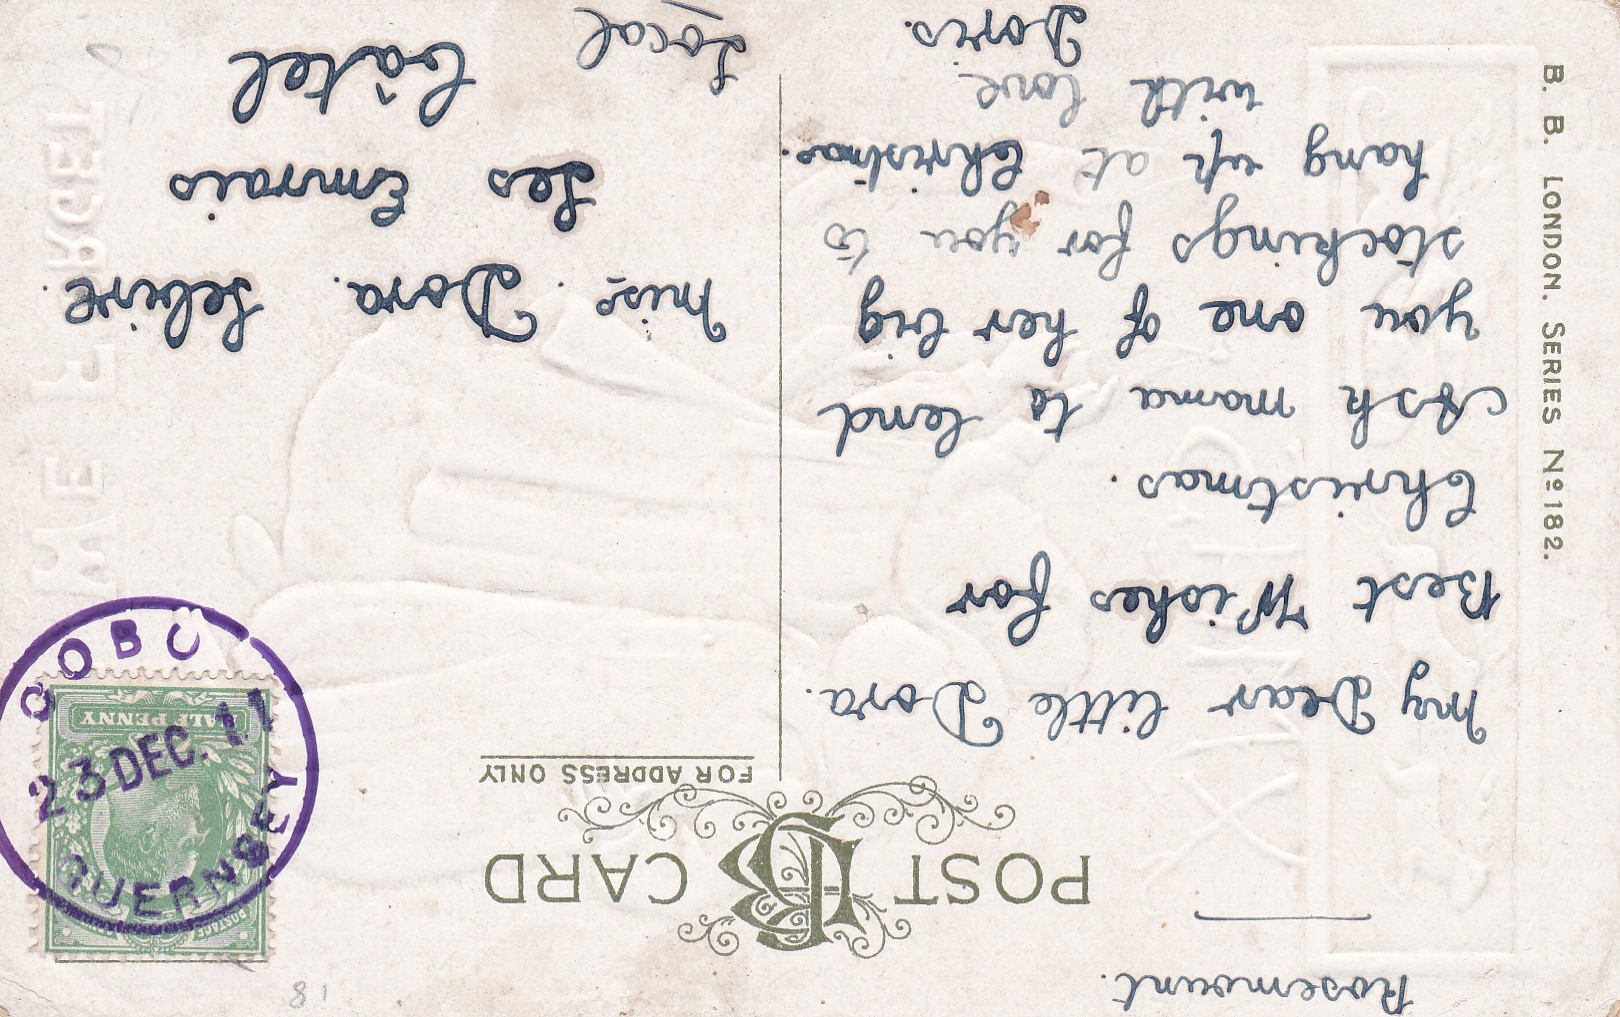 Rosemount.
POST CARD
FOR ADDRESS ONLY
My Dear little Dora.
Best Wishes for
Christmas.
Ask mama to lend
you one of her big
stockings for you to
hang up at Christmas.
with love
Doris.
Miss. Dora. Lelievre.
Les Emrais
Câtel
Local
COBO
23 DEC. 11
GUERNSEY
HALF PENNY
POSTAGE
B. B. LONDON. SERIES Nº 182.
81